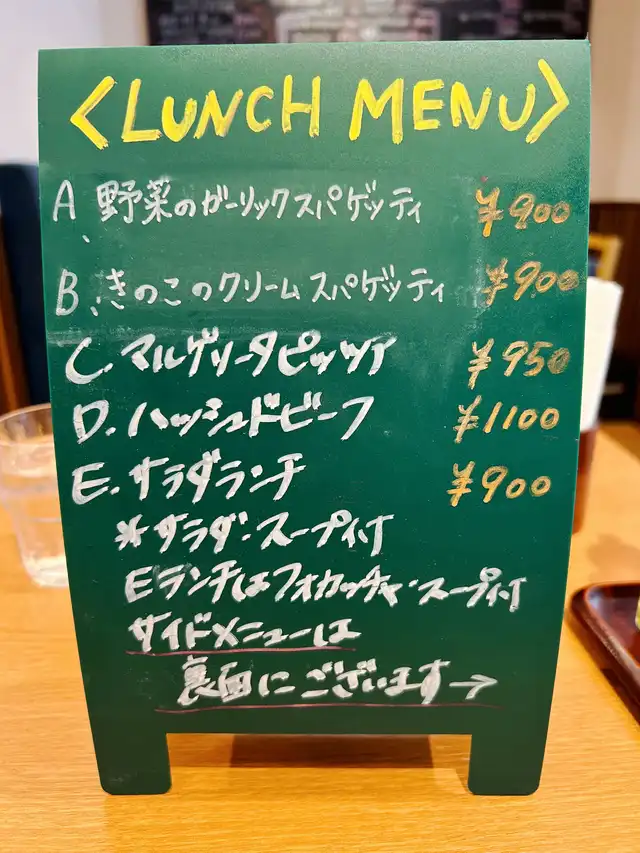 <LUNCH MENU>
A、野菜のガーリックスパゲッティ ¥900
B、きのこのクリームスパゲッティ ¥900
C. マルゲリータピッツァ ¥950
D. ハッシュドビーフ ¥1100
E. サラダランチ ¥900
*サラダ・スープ付
Eランチはフォカッチャ・スープ付
サイドメニューは
裏面にございます→